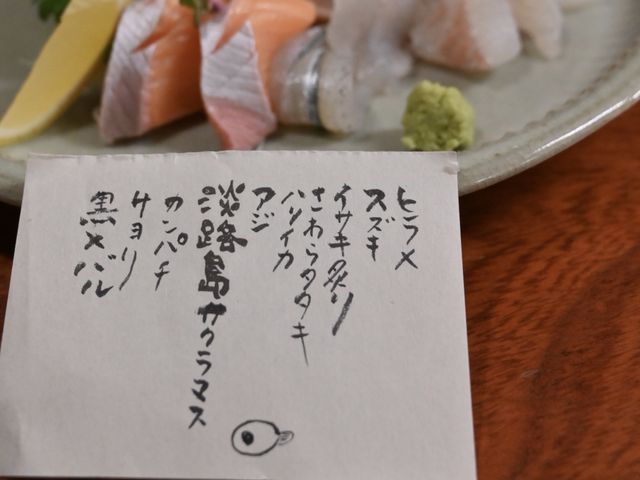 ヒラメ
スズキ
イサキ炙り
さわらタタキ
ハリイカ
アジ
淡路島サクラマス
カンパチ
サヨリ
黒メバル